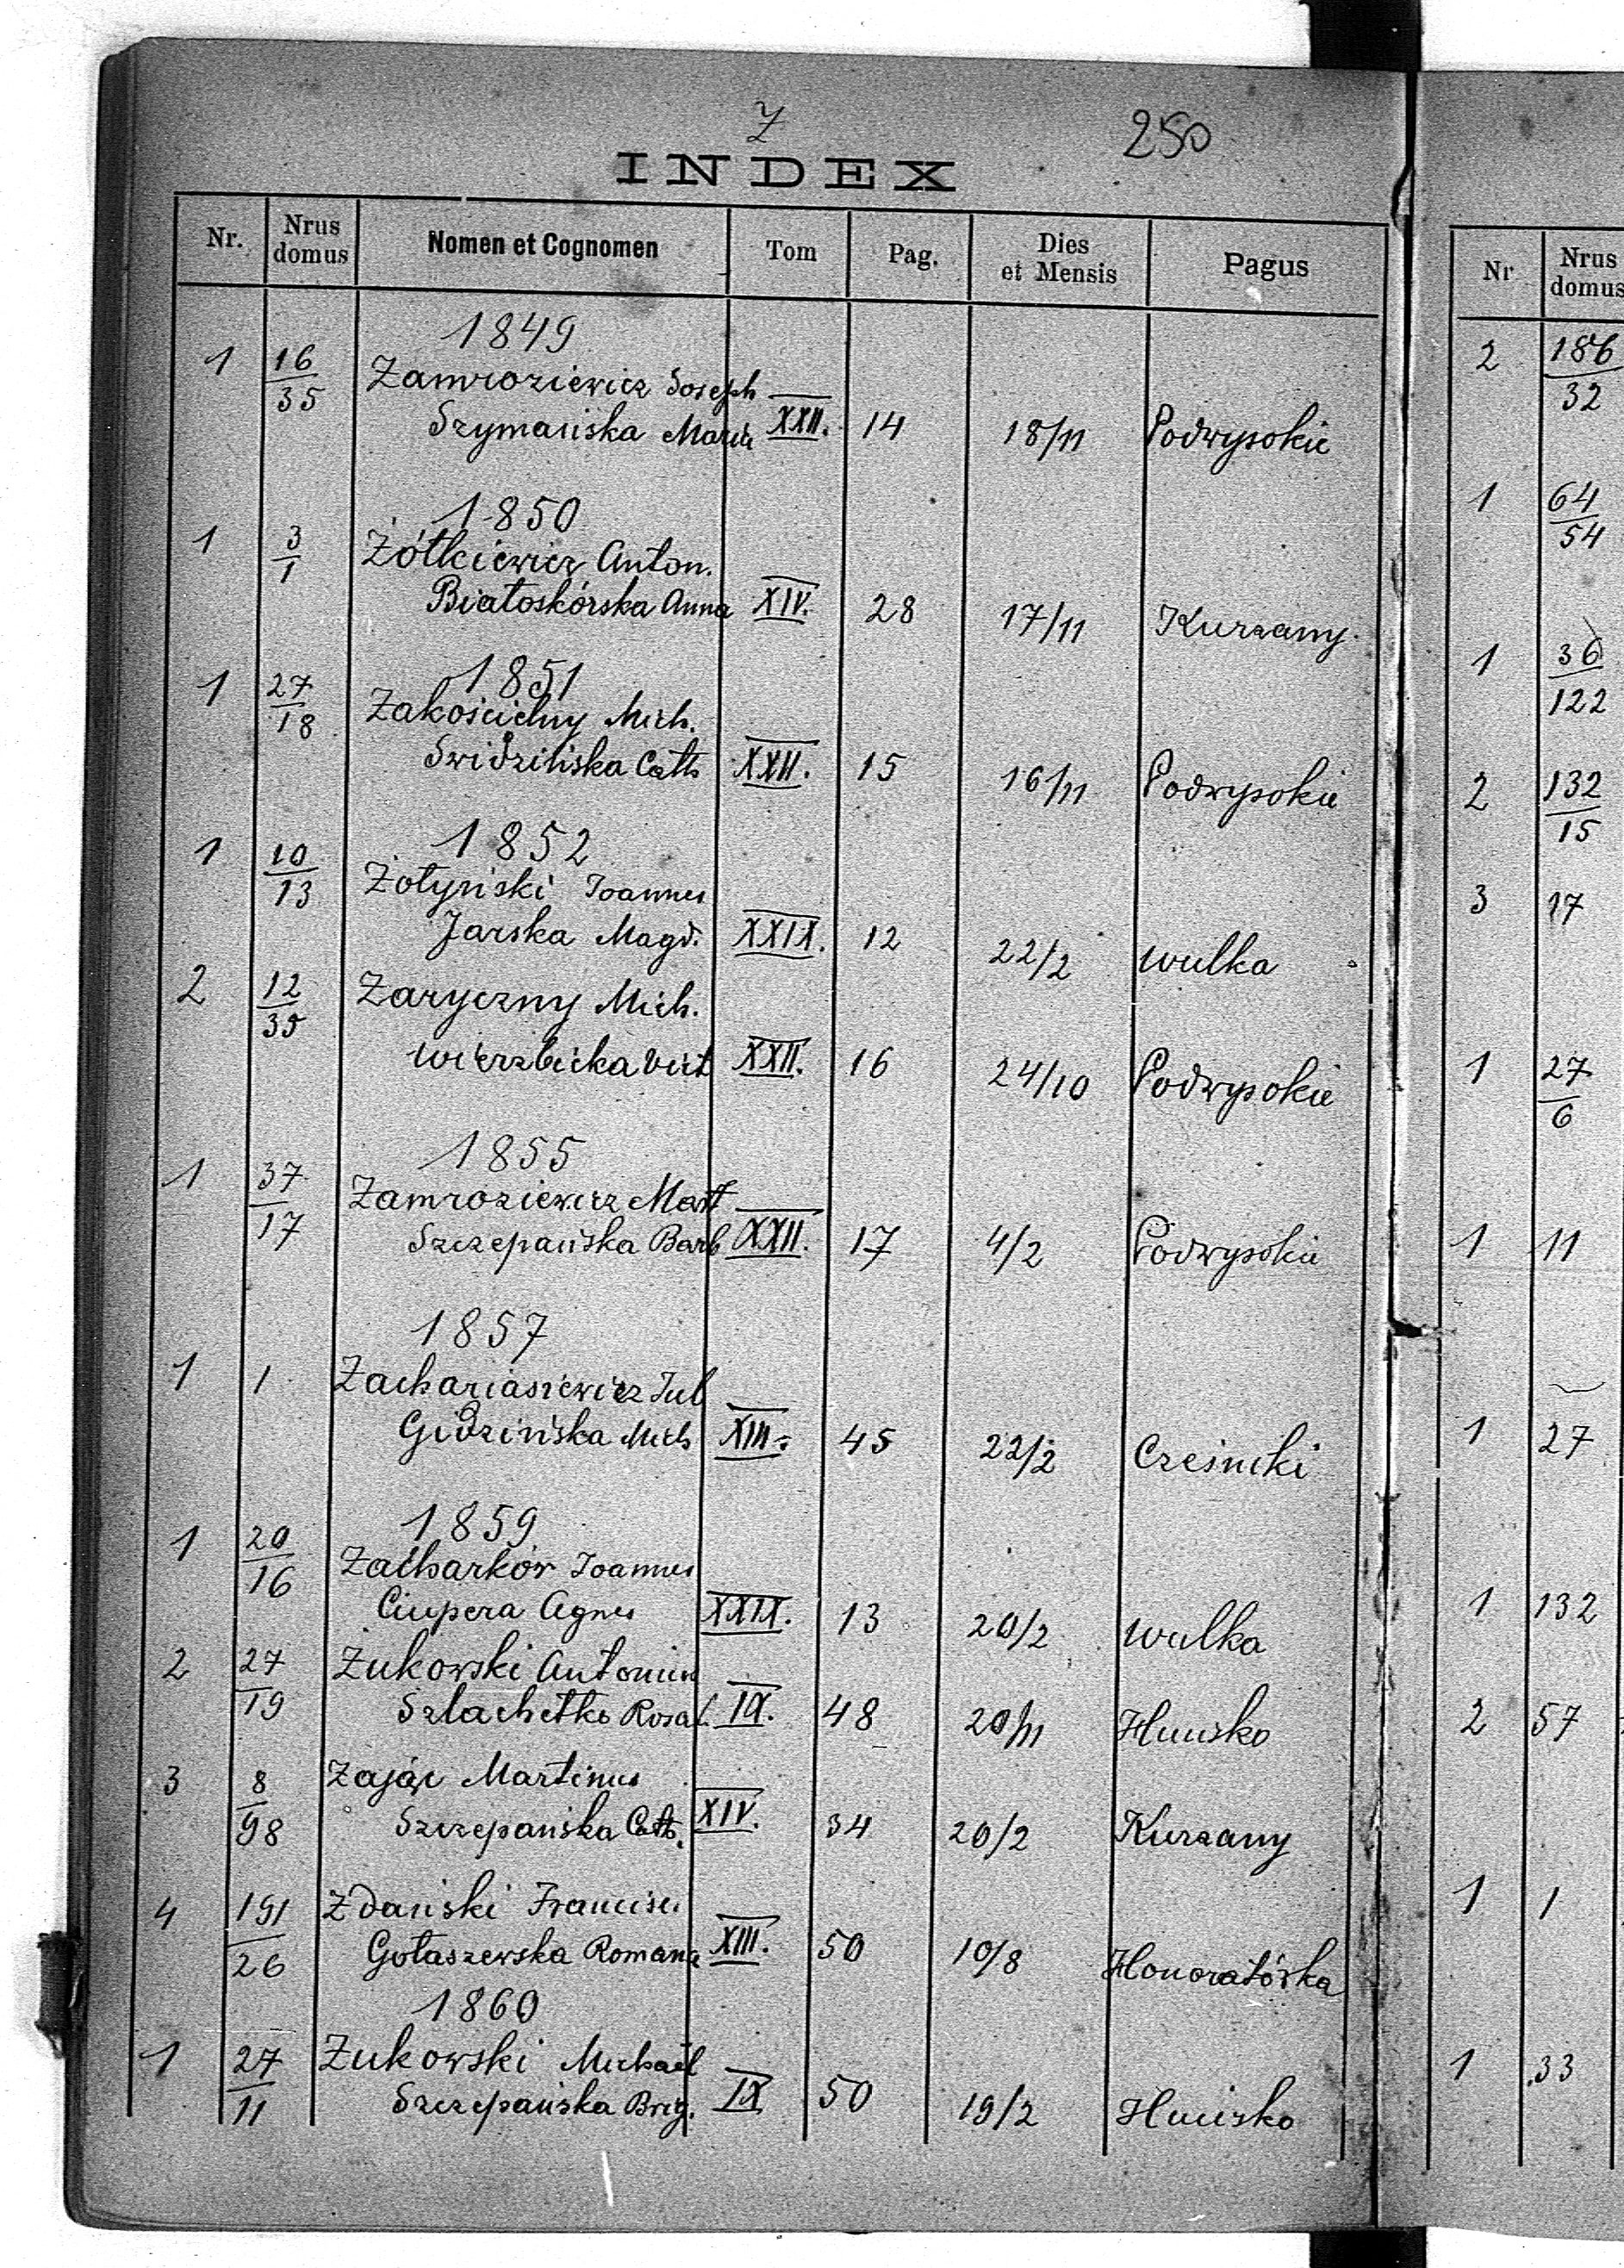 Z
250
INDEX
Nr. Nrus domus Nomen et Cognomen Tom Pag. Dies et Mensis Pagus
1849
1 16/35 Zamroziewicz Joseph
Szymańska Maria XXII. 14 18/11 Podwysokie
1850
1 3/1 Żółkiewicz Anton.
Białoskórska Anna XIV. 28 17/11 Kurzany.
1851
1 27/18 Zakościelny Mich.
Swidzińska Cath XXII. 15 16/11 Podwysokie
1852
1 10/13 Żołyński Joannes
Jarska Magd. XXIX. 12 22/2 Wulka
2 12/35 Zaryczny Mich.
Wierzbicka Vict XXII. 16 24/10 Podwysokie
1855
1 37/17 Zamroziewicz Matt
Szczepańska Barb XXII. 17 4/2 Podwysokie
1857
1 1 Zachariasiewicz Jul
Gidzińska Mich XIII. 45 22/2 Cześniki
1859
1 20/16 Zacharków Joannes
Ciupera Agnes XXIX. 13 20/2 Wulka
2 27/19 Żukowski Antonius
Szlachetko Rosal. IX. 48 20/11 Hucisko
3 8/98 Zając Martinus
Szczepańska Cath. XIV. 34 20/2 Kurzany
4 191/26 Zdański Francisc.
Gołaszewska Romana XIII. 50 10/8 Honoratówka
1860
1 27/11 Żukowski Michaël
Szczepańska Brig. IX 50 19/2 Hucisko
Nr Nrus domus
2 186/32
1 64/54
1 36/122
2 132/15
3 17
1 27/6
1 11
1 27
1 132
2 57
1 1
1 33